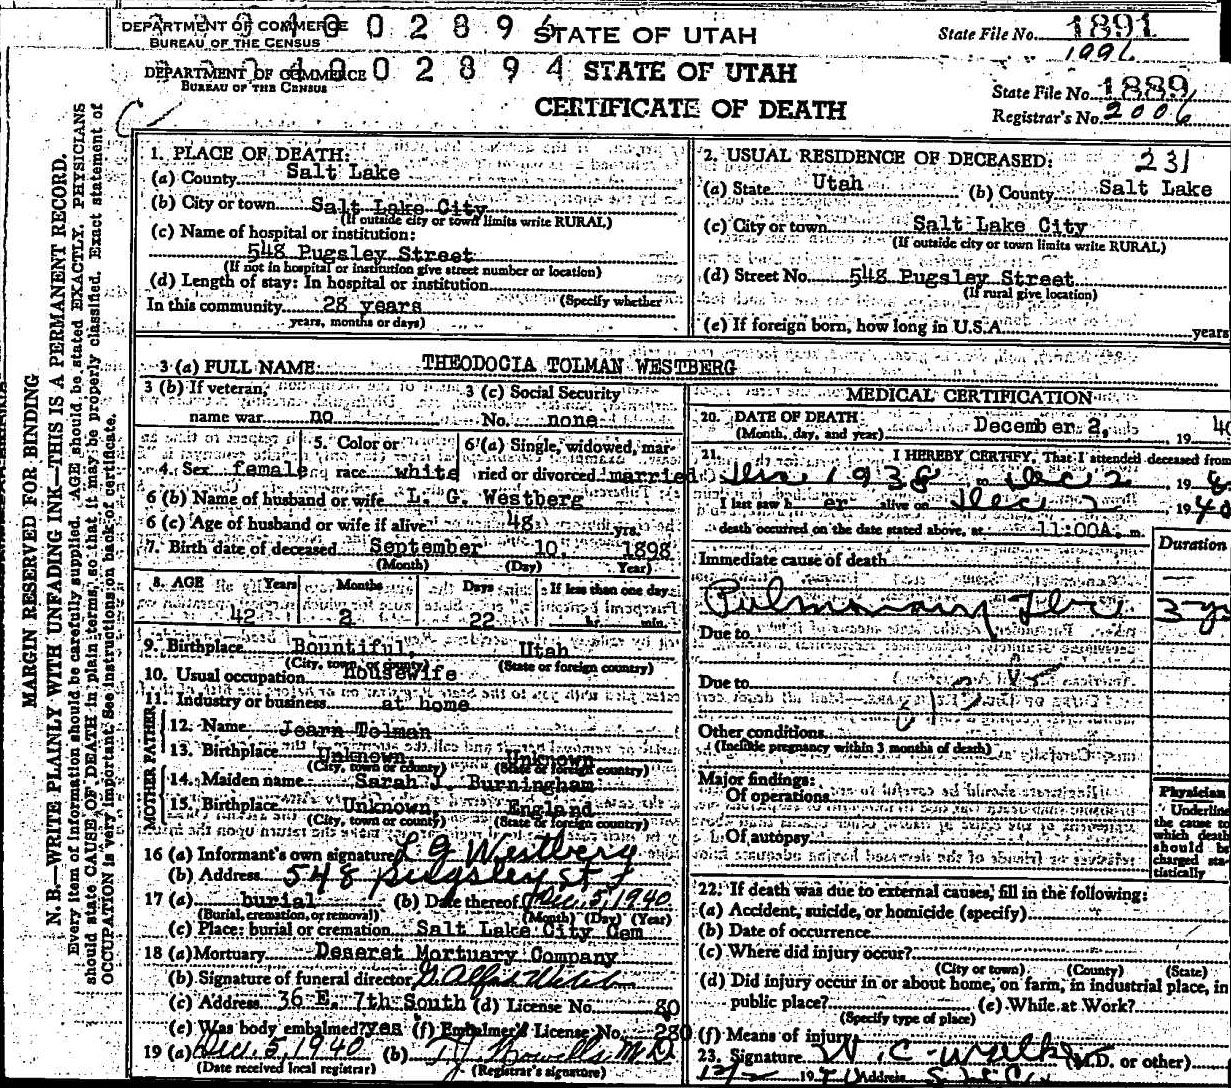 DEPARTMENT OF COMMERCE
BUREAU OF THE CENSUS
STATE OF UTAH
State File No. 1891
1996
DEPARTMENT OF COMMERCE
BUREAU OF THE CENSUS
0 0 2 8 9 4
STATE OF UTAH
CERTIFICATE OF DEATH
State File No. 1889
Registrar's No. 2006
MARGIN RESERVED FOR BINDING
N. B.—WRITE PLAINLY WITH UNFADING INK—THIS IS A PERMANENT RECORD.
Every item of information should be carefully supplied. AGE should be stated EXACTLY. PHYSICIANS
should state CAUSE OF DEATH in plain terms, so that it may be properly classified. Exact statement of
OCCUPATION is very important. See instructions on back of certificate.
1. PLACE OF DEATH:
(a) County Salt Lake
(b) City or town Salt Lake City
(If outside city or town limits write RURAL)
(c) Name of hospital or institution:
548 Pugsley Street
(If not in hospital or institution give street number or location)
(d) Length of stay: In hospital or institution
(Specify whether
In this community 28 years
years, months or days)
2. USUAL RESIDENCE OF DECEASED: 231
(a) State Utah (b) County Salt Lake
(c) City or town Salt Lake City
(If outside city or town limits write RURAL)
(d) Street No. 548 Pugsley Street
(If rural give location)
(e) If foreign born, how long in U.S.A. years
3 (a) FULL NAME THEODOCIA TOLMAN WESTBERG
3 (b) If veteran, 3 (c) Social Security
name war no No. none
4. Sex female 5. Color or race white 6 (a) Single, widowed, married or divorced married
6 (b) Name of husband or wife L. G. Westberg
6 (c) Age of husband or wife if alive 48 yrs.
7. Birth date of deceased September 10, 1898
(Month) (Day) Year)
8. AGE Years Months Days If less than one day
42 2 22 hr. min.
9. Birthplace Bountiful, Utah
(City, town, or county) (State or foreign country)
10. Usual occupation housewife
11. Industry or business at home
FATHER
12. Name Jearn Tolman
13. Birthplace Unknown Unknown
(City, town or county) (State or foreign country)
MOTHER
14. Maiden name Sarah J. Burningham
15. Birthplace Unknown England
(City, town or county) (State or foreign country)
16 (a) Informant's own signature L G Westberg
(b) Address 548 Pugsley St
17 (a) burial (b) Date thereof Dec. 5, 1940
(Burial, cremation, or removal) (Month) (Day) (Year)
(c) Place: burial or cremation Salt Lake City Cem
18 (a) Mortuary Deseret Mortuary Company
(b) Signature of funeral director
(c) Address 36 E. 7th South (d) License No. 80
(e) Was body embalmed? yes (f) Embalmer's License No. 280
19 (a) Dec. 5, 1940 (b) T.J. Howells M.D.
(Date received local registrar) (Registrar's signature)
MEDICAL CERTIFICATION
20. DATE OF DEATH December 2, 19 40
(Month, day, and year)
21. I HEREBY CERTIFY, That I attended deceased from
1938 to Dec 2 19
I last saw h er alive on Dec 2 19 40
death occurred on the date stated above, at 11:00A. m.
Duration
Immediate cause of death
Pulmonary Tbc 3 y
Due to
Due to
Other conditions
(Include pregnancy within 3 months of death)
Major findings:
Of operations
Of autopsy
Physician
Underline
the cause to
which death
should be
charged sta-
tistically
22. If death was due to external causes, fill in the following:
(a) Accident, suicide, or homicide (specify)
(b) Date of occurrence
(c) Where did injury occur?
(City or town) (County) (State)
(d) Did injury occur in or about home, on farm, in industrial place, in
public place? (e) While at Work?
(Specify type of place)
(f) Means of injury
23. Signature W. C. Walker (M.D. or other)
12/2 19 40 Address S L C